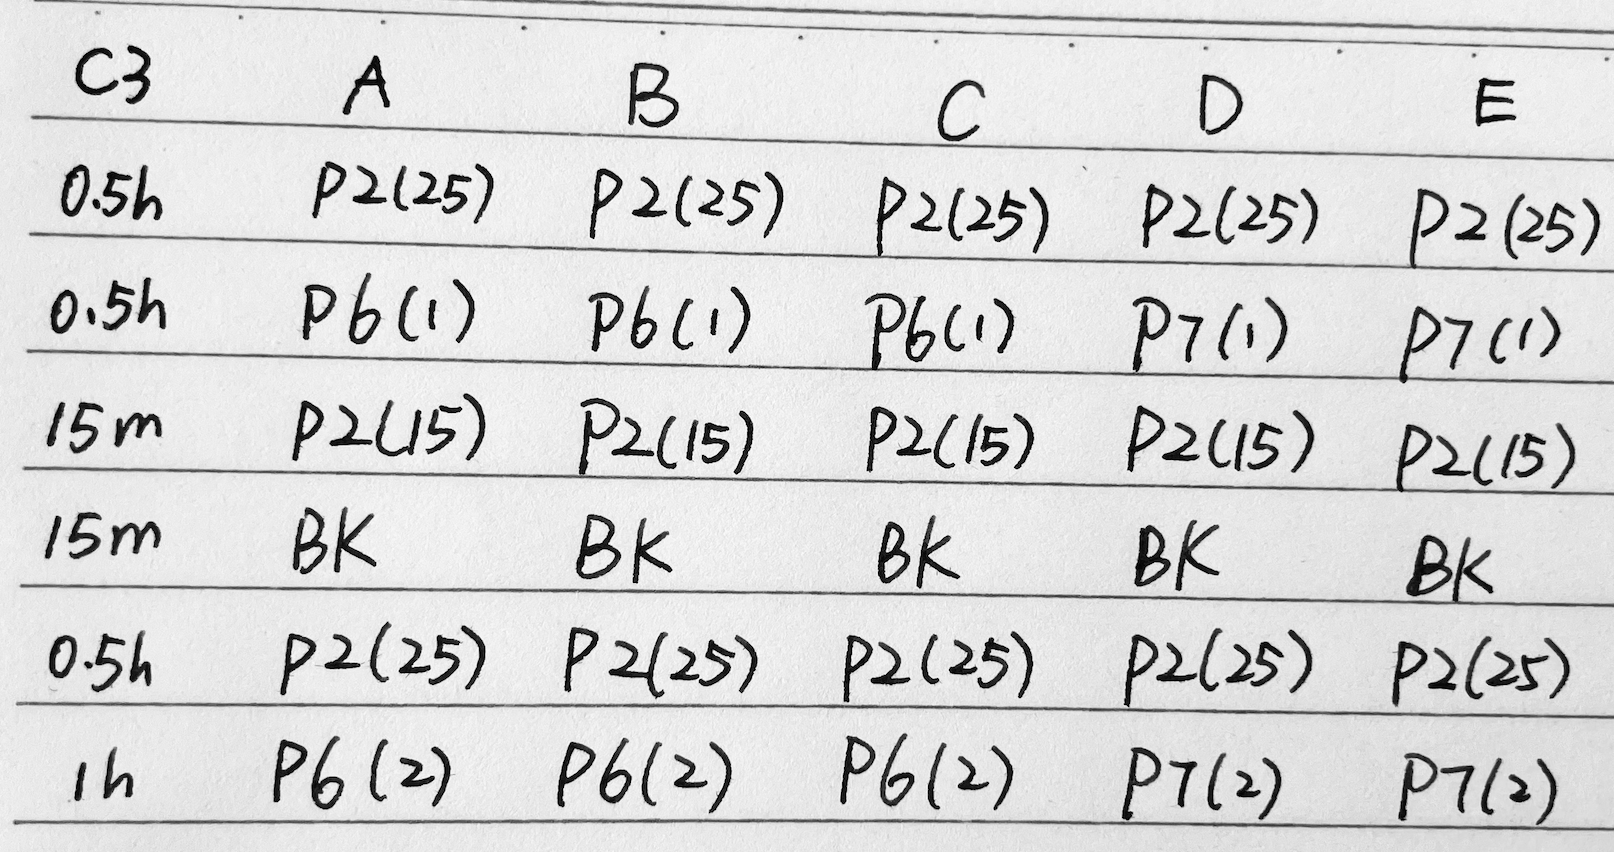 C3 A B C D E
0.5h P2(25) P2(25) P2(25) P2(25) P2(25)
0.5h P6(1) P6(1) P6(1) P7(1) P7(1)
15m P2(15) P2(15) P2(15) P2(15) P2(15)
15m BK BK BK BK BK
0.5h P2(25) P2(25) P2(25) P2(25) P2(25)
1h P6(2) P6(2) P6(2) P7(2) P7(2)